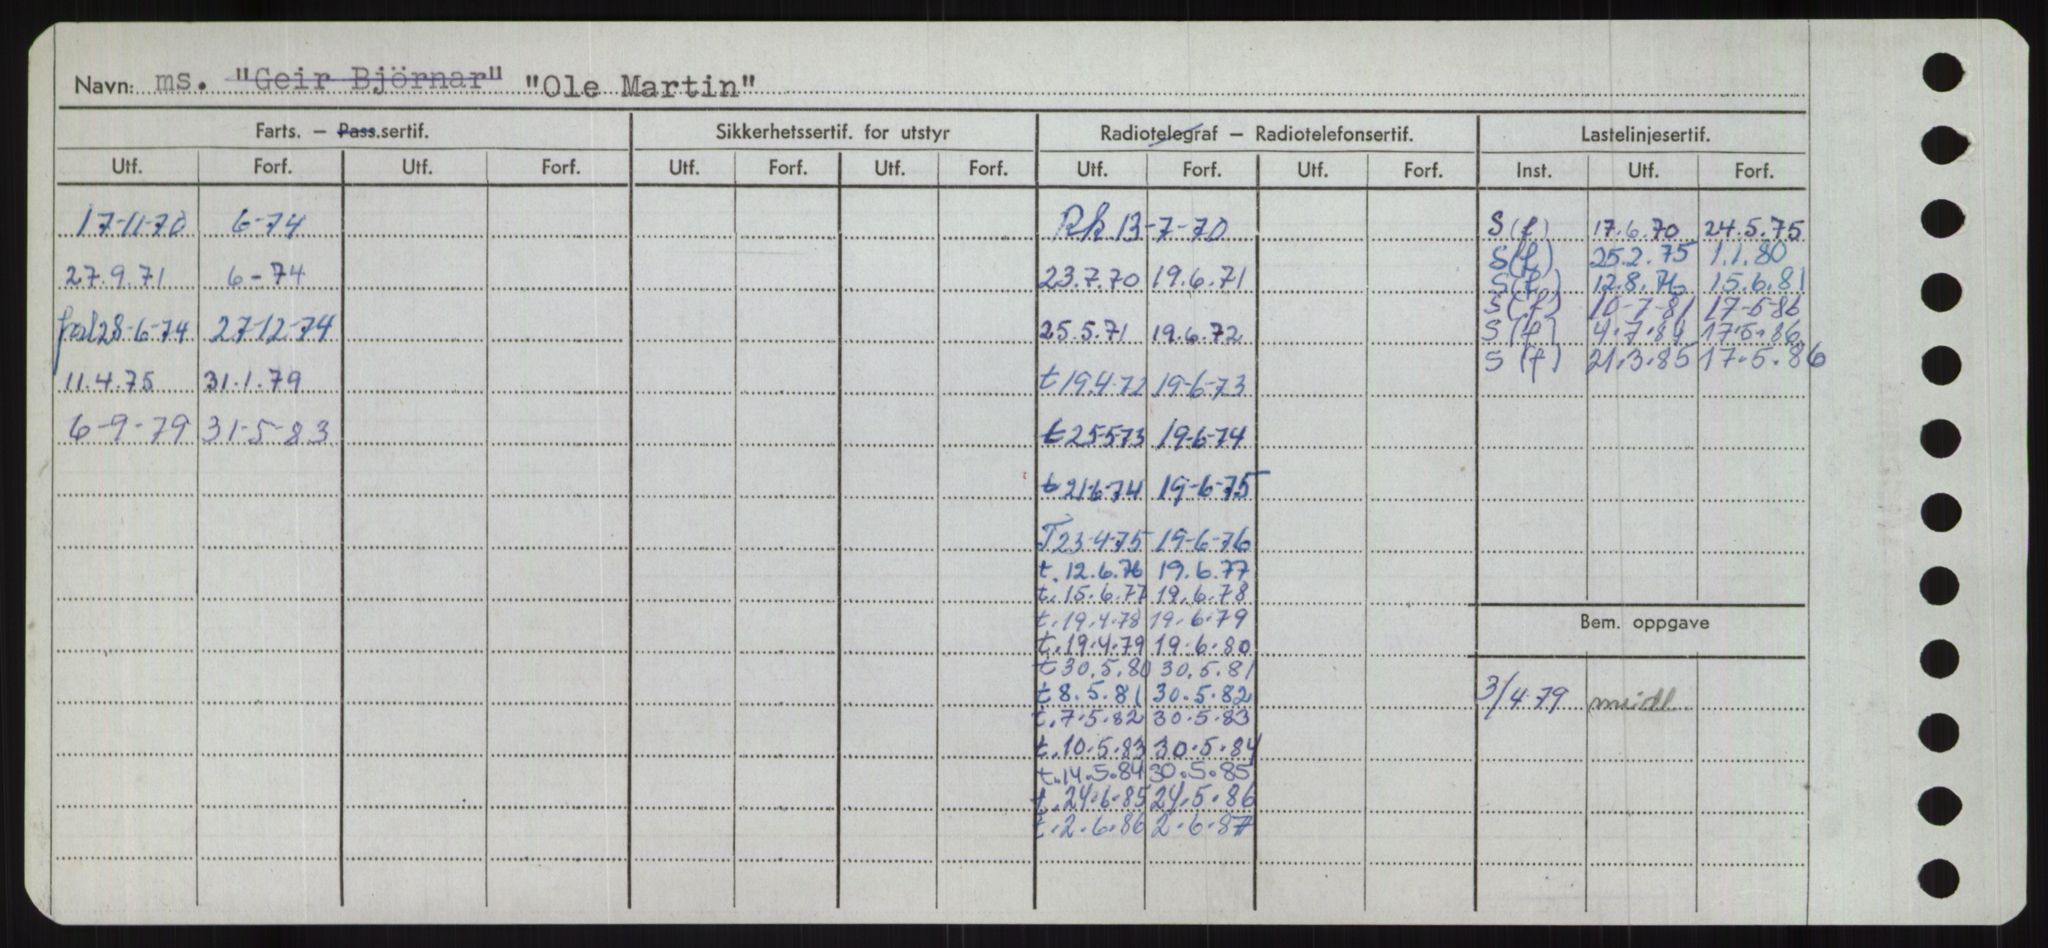 Navn: ms. "Geir Björnar" "Ole Martin"
Farts. – Pass.sertif. Sikkerhetssertif. for utstyr Radiotelegraf – Radiotelefonsertif. Lastelinjesertif.
Utf. Forf. Utf. Forf. Utf. Forf. Utf. Forf. Utf. Forf. Utf. Forf. Inst. Utf. Forf.
17-11-70 6-74
27.9.71 6-74
forl 28-6-74 27-12-74
11.4.75 31.1.79
6-9-79 31-5-83
Rk 13-7-70
23.7.70 19.6.71
25.5.71 19.6.72
t 19.4.72 19-6-73
t 25-5-73 19-6-74
t 21-6-74 19-6-75
T 23-4-75 19-6-76
t. 12.6.76 19.6.77
t. 15.6.77 19.6.78
t. 19.4.78 19.6.79
t. 19.4.79 19.6.80
t 30.5.80 30.5.81
t 8.5.81 30.5.82
t. 7.5.82 30.5.83
t. 10.5.83 30.5.84
t. 14.5.84 30.5.85
t. 24.6.85 24.5.86
t. 2.6.86 2.6.87
S (f) 17.6.70 24.5.75
S (f) 25.2.75 1.1.80
S (f) 12.8.76 15.6.81
S (f) 10-7-81 17-5-86
S (f) 4.7.84 17.5.86
S (f) 21.3.85 17.5.86
Bem. oppgave
3/4.79